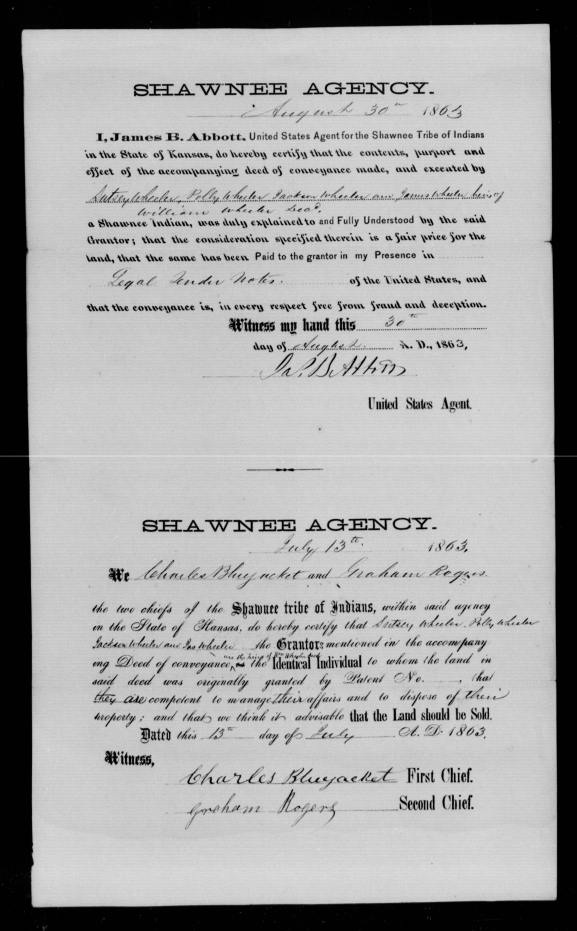 SHAWNEE AGENCY.
August 30th 1863
I, James B. Abbott, United States Agent for the Shawnee Tribe of Indians
in the State of Kansas, do hereby certify that the contents, purport and
effect of the accompanying deed of conveyance made, and executed by
Wheeler, Polly Wheeler Jackson Wheeler and James Wheeler heirs of
William Wheeler Decd.
a Shawnee Indian, was duly explained to and Fully Understood by the said
Grantor; that the consideration specified therein is a fair price for the
land, that the same has been Paid to the grantor in my Presence in
Legal Tender Notes. of the United States, and
that the conveyance is, in every respect free from fraud and deception.
Witness my hand this 30th
day of August A. D., 1863,
Jas. B. Abbott
United States Agent.
SHAWNEE AGENCY.
July 13th 1863.
We Charles Bluejacket and Graham Rogers
the two chiefs of the Shawnee tribe of Indians, within said agency
in the State of Kansas, do hereby certify that Wheeler Polly Wheeler
Jackson Wheeler and Jas Wheeler the Grantor mentioned in the accompany
ing Deed of conveyance, are the heirs of Wm Wheeler the Identical Individual to whom the land in
said deed was originally granted by Patent No. , that
they are competent to manage their affairs and to dispose of their
property; and that we think it advisable that the Land should be Sold.
Dated this 13th day of July A. D. 1863.
Witness,
Charles Bluejacket First Chief.
Graham Rogers Second Chief.